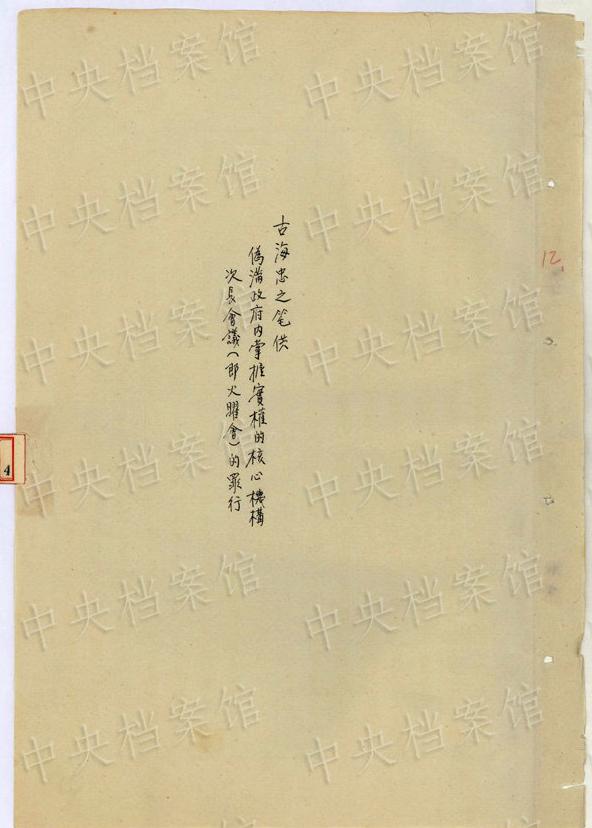 古海忠之笔供
偽滿政府内掌握實權的核心機構
次長會議(即火曜會)的罪行
12.
4
中央档案馆
中央档案馆
中央档案馆
中央档案馆
中央档案馆
中央档案馆
中央档案馆
中央档案馆
中央档案馆
中央档案馆
中央档案馆
中央档案馆